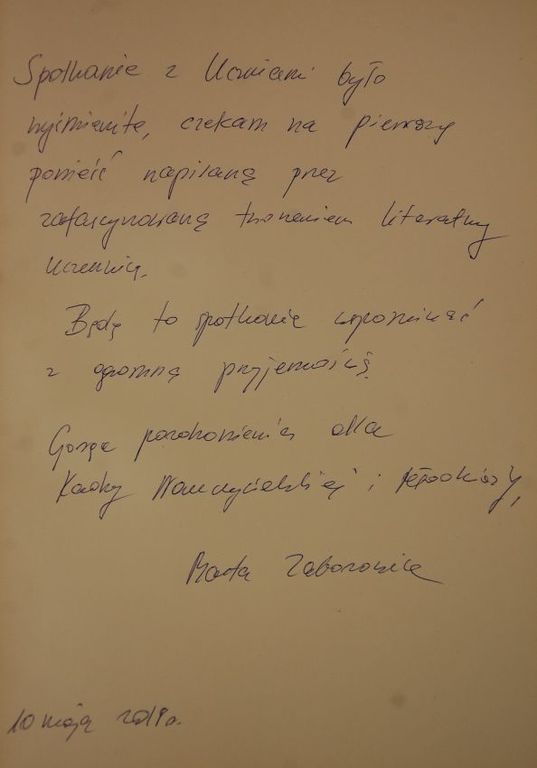 Spotkanie z Uczniami było
wyśmienite, czekam na pierwszą
powieść napisaną przez
zafascynowaną tworzeniem literatury
Uczennicę.
Będę to spotkanie wspominać
z ogromną przyjemnością.
Gorące pozdrowienia dla
Kadry Nauczycielskiej i Młodzieży,
Marta Zaborowska
10 maja r.